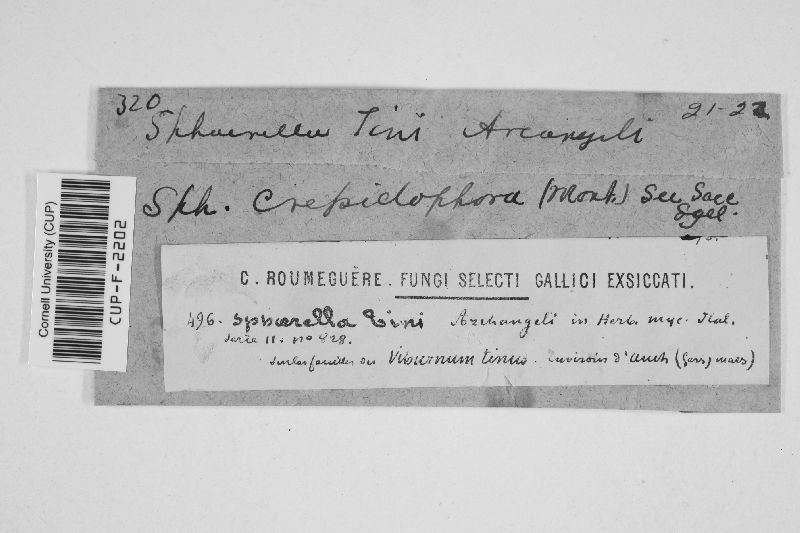 320
21-22
Sphaerella Tini Arcangeli
Sph. Crepidophora (Mont.) See Sacc
Syll.
C. ROUMEGUÈRE. FUNGI SELECTI GALLICI EXSICCATI.
496. Sphærella Tini Archangeli in Herb. myc. Ital.
Serie II. no 428.
Sur les feuilles du Viburnum tinus. environs d'Auch (Gers) mars)
Cornell University (CUP)
CUP-F-2202